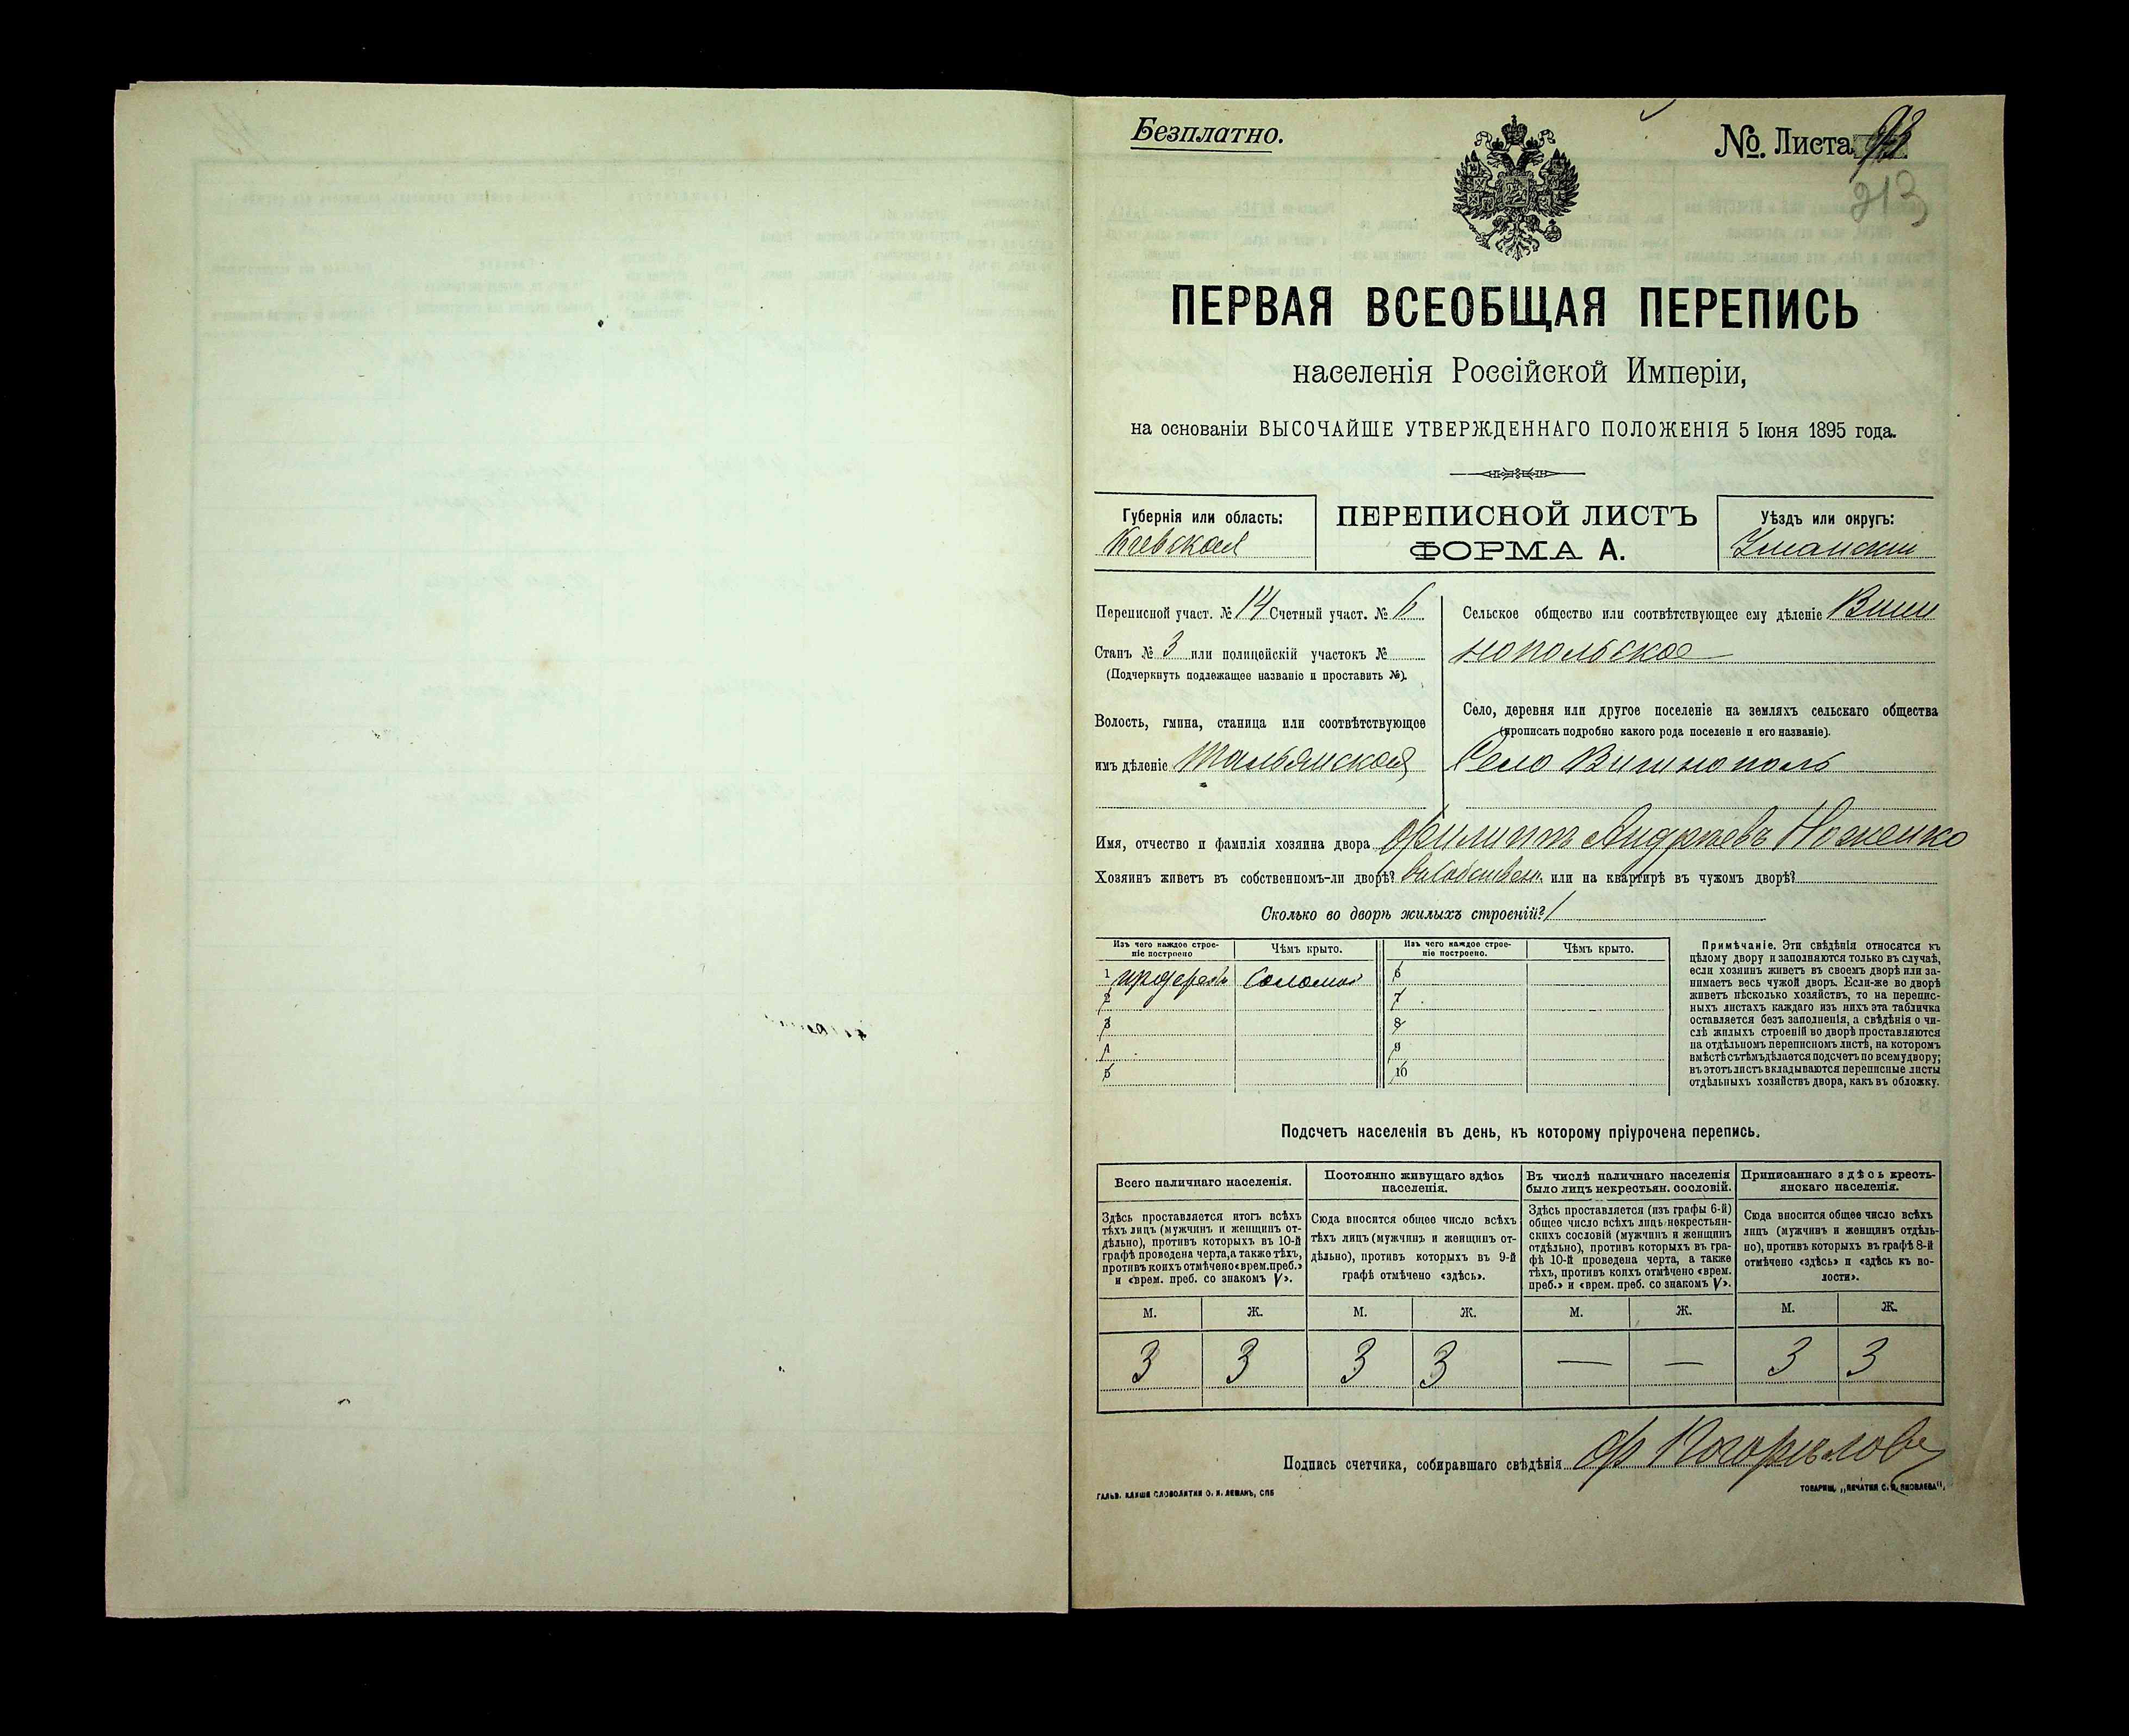 Безплатно.
№ Листа 93
213
ПЕРВАЯ ВСЕОБЩАЯ ПЕРЕПИСЬ
населенія Россійской Имперіи,
на основаніи ВЫСОЧАЙШЕ УТВЕРЖДЕННАГО ПОЛОЖЕНІЯ 5 Іюня 1895 года.
Губернія или область:
Кіевская
ПЕРЕПИСНОЙ ЛИСТЪ
ФОРМА А.
Уѣздъ или округъ:
Уманскій
Переписной участ. № 14 Счетный участ. № 6
Станъ № 3 или полицейскій участокъ №
(Подчеркнуть подлежащее названіе и проставить №).
Волость, гмина, станица или соотвѣтствующее
имъ дѣленіе Тальянская
Сельское общество или соотвѣтствующее ему дѣленіе Виши
нопольское
Село, деревня или другое поселеніе на земляхъ сельскаго общества
(прописать подробно какого рода поселеніе и его названіе).
Село Вишнополь
Имя, отчество и фамилія хозяина двора Филиппъ Андреевъ Ноженко
Хозяинъ живетъ въ собственномъ-ли дворѣ? или на квартирѣ въ чужомъ дворѣ?
Сколько во дворѣ жилыхъ строеній? 1
Изъ чего каждое строе-
ніе построено
Чѣмъ крыто.
Изъ чего каждое строе-
ніе построено.
Чѣмъ крыто.
1 Соломой
2
3
4
5
6
7
8
9
10
Примѣчаніе. Эти свѣдѣнія относятся къ
цѣлому двору и заполняются только въ случаѣ,
если хозяинъ живетъ въ своемъ дворѣ или за-
нимаетъ весь чужой дворъ. Если-же во дворѣ
живетъ нѣсколько хозяйствъ, то на перепис-
ныхъ листахъ каждаго изъ нихъ эта табличка
оставляется безъ заполненія, а свѣдѣнія о чи-
слѣ жилыхъ строеній во дворѣ проставляются
на отдѣльномъ переписномъ листѣ, на которомъ
вмѣстѣ съ тѣмъ дѣлается подсчетъ по всему двору;
въ этотъ листъ вкладываются переписные листы
отдѣльныхъ хозяйствъ двора, какъ въ обложку.
Подсчетъ населенія въ день, къ которому пріурочена перепись.
Всего наличнаго населенія.
Здѣсь проставляется итогъ всѣхъ
тѣхъ лицъ (мужчинъ и женщинъ от-
дѣльно), противъ которыхъ въ 10-й
графѣ проведена черта, а также тѣхъ,
противъ коихъ отмѣчено «врем. преб.»
и «врем. преб. со знакомъ V».
Постоянно живущаго здѣсь
населенія.
Сюда вносится общее число всѣхъ
тѣхъ лицъ (мужчинъ и женщинъ от-
дѣльно), противъ которыхъ въ 9-й
графѣ отмѣчено «здѣсь».
Въ числѣ наличнаго населенія
было лицъ некрестьян. сословій.
Здѣсь проставляется (изъ графы 6-й)
общее число всѣхъ лицъ некрестьян-
скихъ сословій (мужчинъ и женщинъ
отдѣльно), противъ которыхъ въ гра-
фѣ 10-й проведена черта, а также
тѣхъ, противъ коихъ отмѣчено «врем.
преб.» и «врем. преб. со знакомъ V».
Приписаннаго здѣсь кресть-
янскаго населенія.
Сюда вносится общее число всѣхъ
лицъ (мужчинъ и женщинъ отдѣль-
но), противъ которыхъ въ графѣ 8-й
отмѣчено «здѣсь» и «здѣсь къ во-
лости».
М. Ж. М. Ж. М. Ж. М. Ж.
3 3 3 3 — — 3 3
Подпись счетчика, собиравшаго свѣдѣнія Ф Погорѣловъ
ГАЛЬВ. КЛИШЕ СЛОВОЛИТНИ О. И. ЛЕМАНЪ, СПБ
ТОВАРИЩ. „ПЕЧАТНЯ С. П. ЯКОВЛЕВА“.